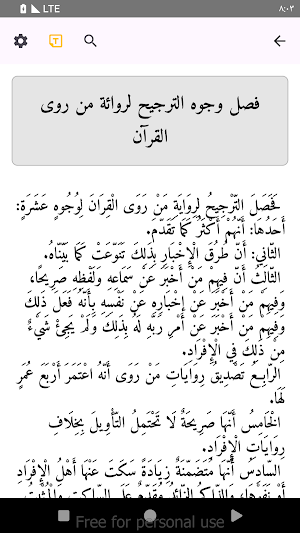 LTE ٨:٠٣
فصل وجوه الترجيح لروائة من روى
القرآن
فَحَصَلَ التَّرْجِيحُ لِرِوَايَةِ مَنْ رَوَى الْقِرَانَ لِوُجُوهٍ عَشَرَةٍ:
أَحَدُهَا: أَنَّهُمْ أَكْثَرُ كَمَا تَقَدَّمَ.
الثَّانِي: أَنَّ طُرُقَ الْإِخْبَارِ بِذَلِكَ تَنَوَّعَتْ كَمَا بَيَّنَّاهُ.
الثَّالِثُ أَنَّ فِيهِمْ مَنْ أَخْبَرَ عَنْ سَمَاعِهِ وَلَفْظِهِ صَرِيحًا،
وَفِيهِمْ مَنْ أَخْبَرَ عَنْ إِخْبَارِهِ عَنْ نَفْسِهِ بِأَنَّهُ فَعَلَ ذَلِكَ
وَفِيهِمْ مَنْ أَخْبَرَ عَنْ أَمْرِ رَبِّهِ لَهُ بِذَلِكَ وَلَمْ يَجِئْ شَيْءٌ
مِنْ ذَلِكَ فِي الْإِفْرَادِ.
الرَّابِعُ تَصْدِيقُ رِوَايَاتِ مَنْ رَوَى أَنَّهُ اعْتَمَرَ أَرْبَعَ عُمَرٍ
لَهَا.
الْخَامِسُ أَنَّهَا صَرِيحَةٌ لَا تَحْتَمِلُ التَّأْوِيلَ بِخِلَافِ
رِوَايَاتِ الْإِفْرَادِ.
السَّادِسُ أَنَّهَا مُتَضَمِّنَةٌ زِيَادَةً سَكَتَ عَنْهَا أَهْلُ الْإِفْرَادِ
أَوْ نَفَوْهَا، وَالذَّاكِرُ الزَّائِدُ مُقَدَّمٌ عَلَى السَّاكِتِ وَالْمُثْبِتُ
Free for personal use